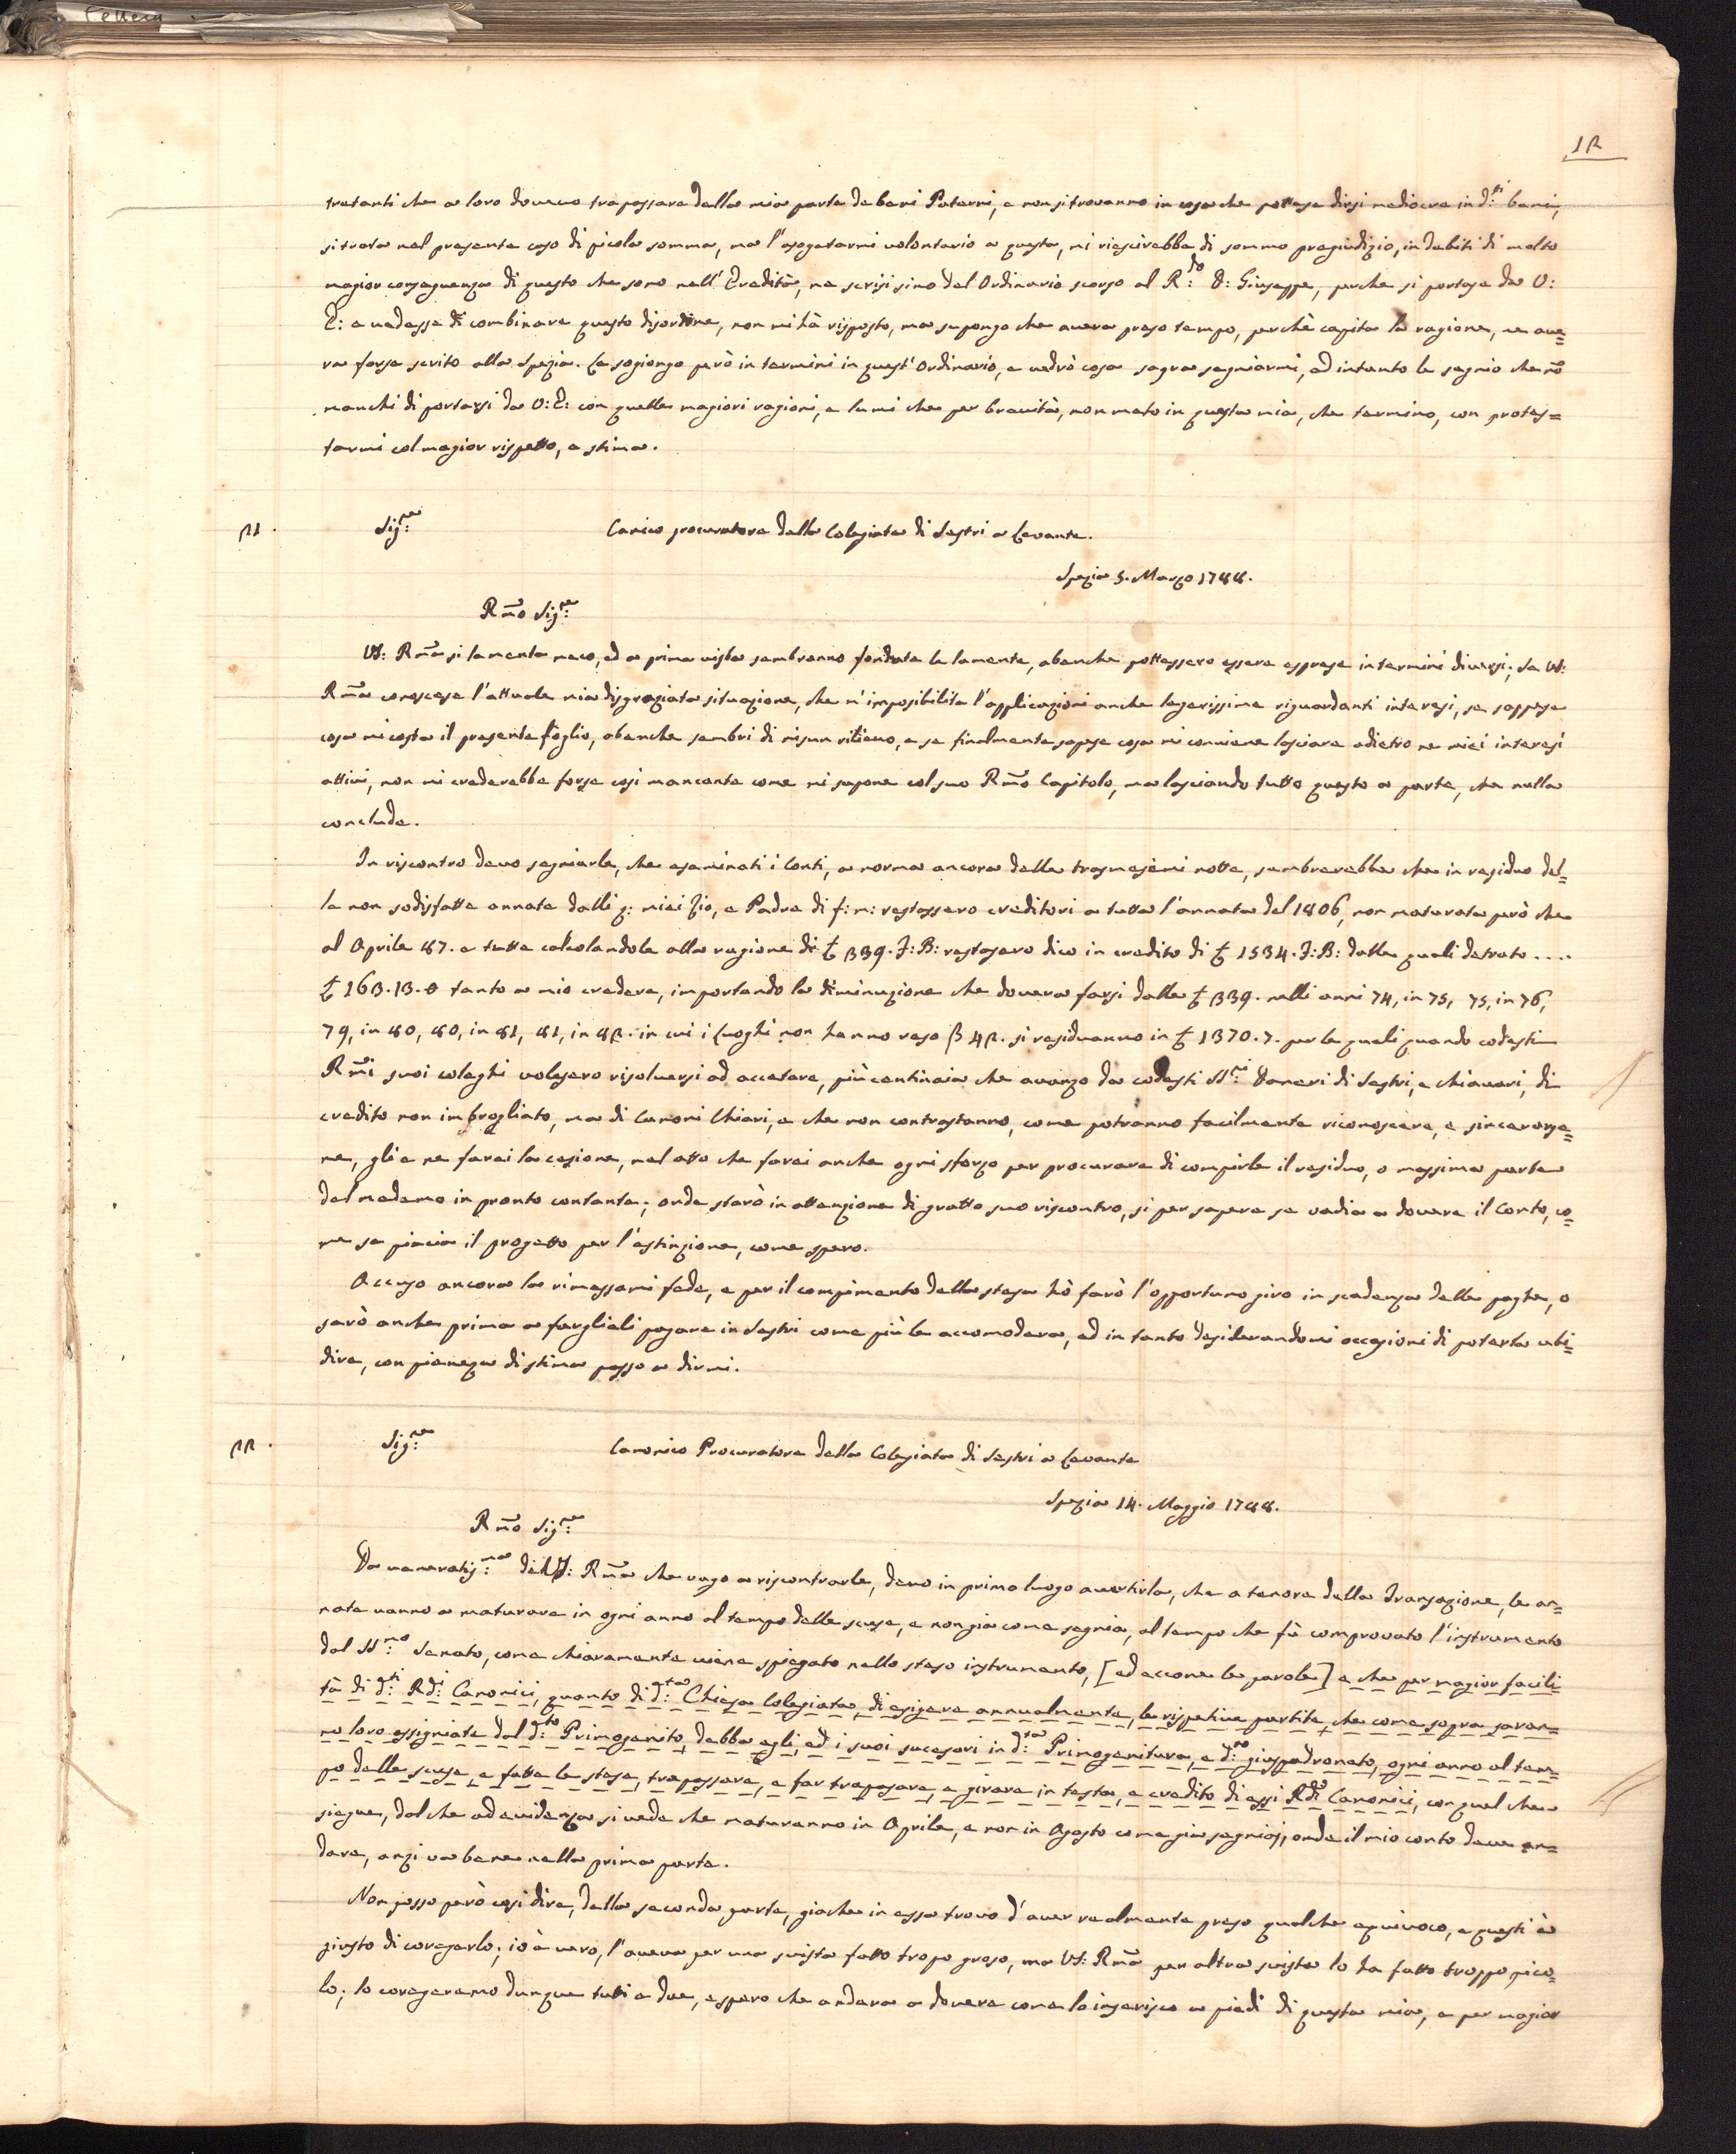 12
tratanti che a loro doveva trapassare della mia parte de beni Paterni, e non si trovanno in cosa che pottesse dirsi mediocre in d.ti beni,
si trata nel presente caso di picola somma, ma l'asogetarmi volontario a questa, mi riescirebbe di sommo pregiudizio, in debiti di molto
magior conseguenza di questo che sono nell'Eredità, ne scrisi sino del Ordinario scorso al R:do D: Giuseppe, perche si portase da V:
E: e vedesse di combinare questo disordine, non mi hà risposto, ma supongo che avera preso tempo, perchè capita la ragione, ne ave=
ra forse scrito alla Spezia. Le sogiongo però in termini in quest'Ordinario, e vedrò cosa sapra segniarmi, ed intanto le segnio che nõ
manchi di portarsi da V: E: con quelle magiori ragioni, e lumi che per brevità, non meto in questa mia, che termino, con protes=
tarmi col magior rispetto, e stima.
21. Sig:re Canico procuratore della Colegiata di Sestri a Levante.
Spezia 5. Marzo 1788.
Rmo Sig:re
VS: Rma si lamenta meco, ed a prima vista sembranno fondate le lamente, abenche pottessero essere esprese in termini diversi; Se VS:
Rma conoscese l'attuale mia disgraziata situazione, che m'imposibilita l'applicazioni anche legerissime riguardanti interesi, se sappese
cosa mi costa il presente foglio, abenche sembri di nisun rilievo, e se finalmente sapese cosa mi conviene lasciare adietro ne miei interesi
attivi, non mi crederebbe forse così mancante come mi supone col suo Rmo Capitolo, ma lasciando tutto questo a parte, che nulla
conclude.
In riscontro devo segniarle, che esaminati i Conti, a norma ancora delle trasmesemi notte, sembrerebbe che in residuo del=
le non sodisfatte annate dalli q: miei Zio, e Padre di f: m: restassero creditori a tutta l'annata del 1806, non maturata però che
al Aprile 87. e tutte calcolandole alla ragione di £ 339. F: B: restasero dico in credito di £ 1534. F: B: dalle quali detrato ....
£ 163.13.8 tanto a mio credere, importando la diminuzione che dovera farsi dalle £ 339. nelli anni 74, in 75, 75, in 76,
79, in 80, 80, in 81, 81, in 82. in cui i Luoghi non hanno reso β 42. si residuanno in £ 1370.7. per le quali quando codesti
Rmi suoi coleghi volesero risolversi ad accetare, più centinaia che avanzo da codesti SS:ri Daneri di Sestri, e Chiavari, di
credito non imbrogliato, ma di Canoni Chiari, e che non contrastanno, come potranno facilmente riconoscere, e sincerarse=
ne, gli e ne farei la cesione, nel atto che farei anche ogni sforzo per procurare di compirle il residuo, o massima parte
del medemo in pronto contante; onde starò in attenzione di gratto suo riscontro, si per sapere se vadia a dovere il Conto, co=
me se piacia il progetto per l'estinzione, come spero.
Accuso ancora la rimessami fede, e per il compimento della stesa hò farò l'opportuno giro in scadenza delle paghe, o
sarò anche prima a fargliali pagare in Sestri come più le accomodera, ed in tanto desiderandomi occasioni di poterla ubi=
dire, con pieneza di stima passo a dirmi.
22. Sig:re Canonico Procuratore della Colegiata di Sestri a Levante
Spezia 14. Maggio 1788.
Rmo Sig:re
Da veneratis:ma di VS: Rma che vago a riscontrarle, devo in primo luogo avertirla, che a tenore della Transazione, le an=
nate vanno a maturare in ogni anno al tempo delle scuse, e non già come segnia, al tempo che fù comprovato l'instrumento
dal SS:mo Senato, come chiaramente viene spiegato nello steso instrumento, [ed eccone le parole] e che per magior facili=
tà di d:ti Rdi: Canonici, quanto di d:ta Chiesa Colegiata, di esigere annualmente, le rispetive partite, che come sopra saran=
no loro assigniate dal d:to Primogenito, debba egli, ed i suoi sucesori in d:ta Primogenitura, e d:to giuspadronato, ogni anno al tem=
po delle scuse, e fatte le stese, trapassare, e far trapasare, e girare in testa, e credito di essi Rdi Canonici, con quel che
siegue, dal che ad evidenza si vede che maturanno in Aprile, e non in Agosto come già segnioj; onde il mio conto deve an=
dare, anzi va bene nella prima parte.
Non posso però così dire, della seconda parte, giache in essa trovo d'aver realmente preso qualche equivoco, e questi è
giusto di coregerlo; io è vero, l'aveva per una svista fatto tropo groso, ma VS: Rma per altra svista lo ha fatto troppo pico=
lo; lo coregeremo dunque tutti e due, e spero che andera a dovere come lo inserisco a piedi di questa mia, e per magior